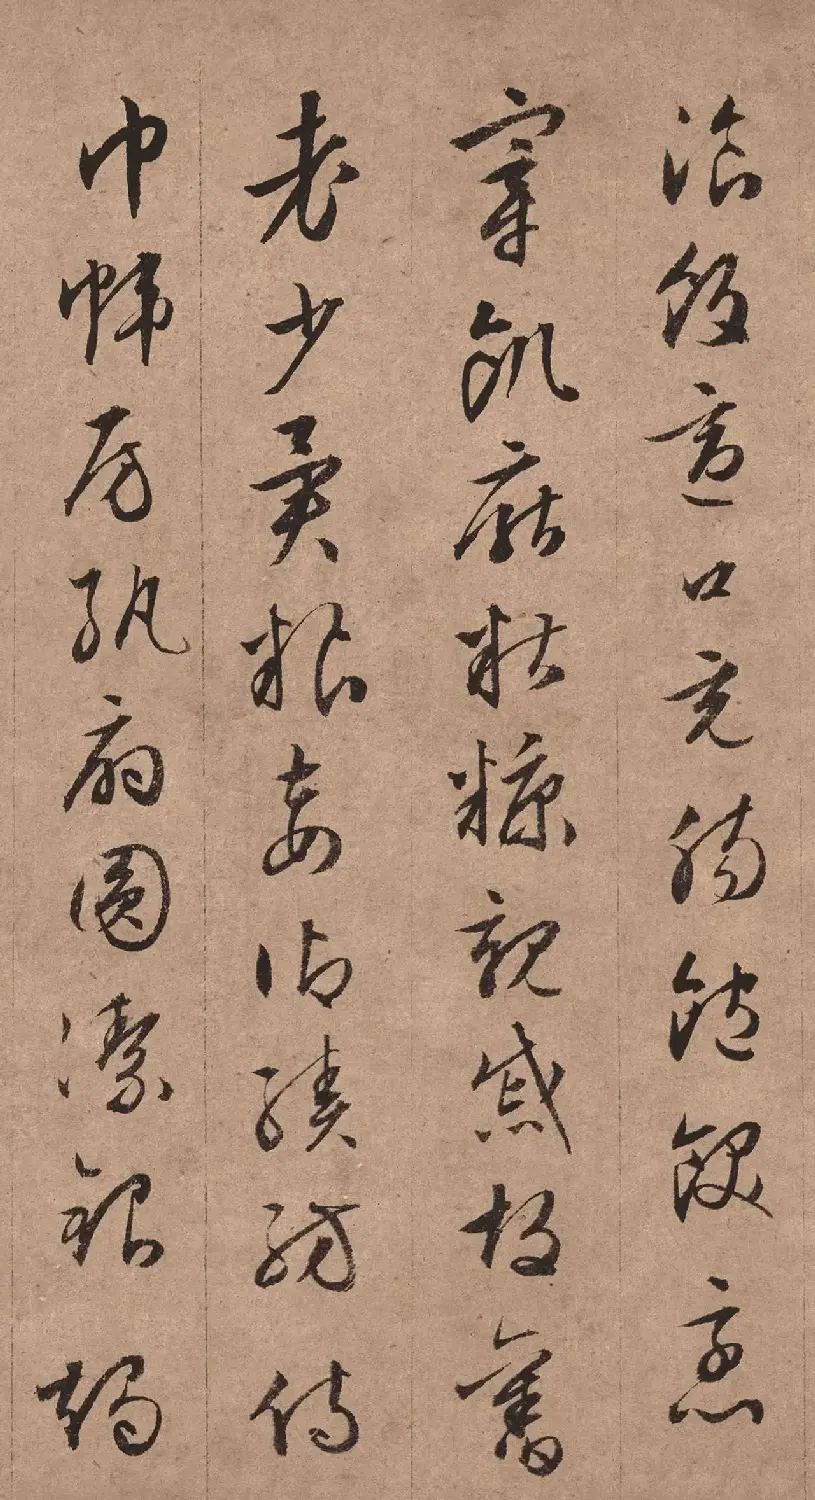 湌飯適口充腸飽飫烹
宰飢厭糟糠親戚故舊
老少異粮妾御績紡侍
巾帷房紈扇圓潔銀燭